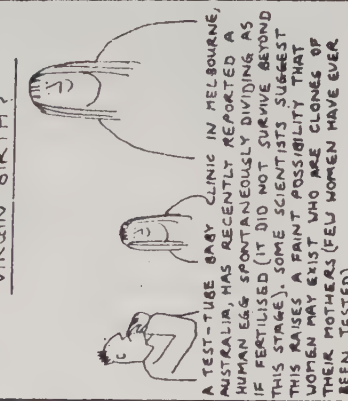 VIRGIN BIRTH?
A TEST-TUBE BABY CLINIC IN MELBOURNE,
AUSTRALIA, HAS RECENTLY REPORTED A
HUMAN EGG SPONTANEOUSLY DIVIDING AS
IF FERTILISED (IT DID NOT SURVIVE BEYOND
THIS STAGE). SOME SCIENTISTS SUGGEST
THIS RAISES A FAINT POSSIBILITY THAT
WOMEN MAY EXIST WHO ARE CLONES OF
THEIR MOTHERS (FEW WOMEN HAVE EVER
BEEN TESTED)